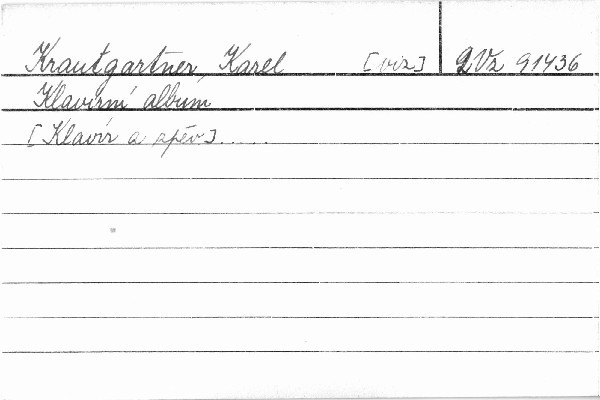 Krautgartner, Karel [viz] QVz 91436
Klavírní album
[Klavír a zpěv].....